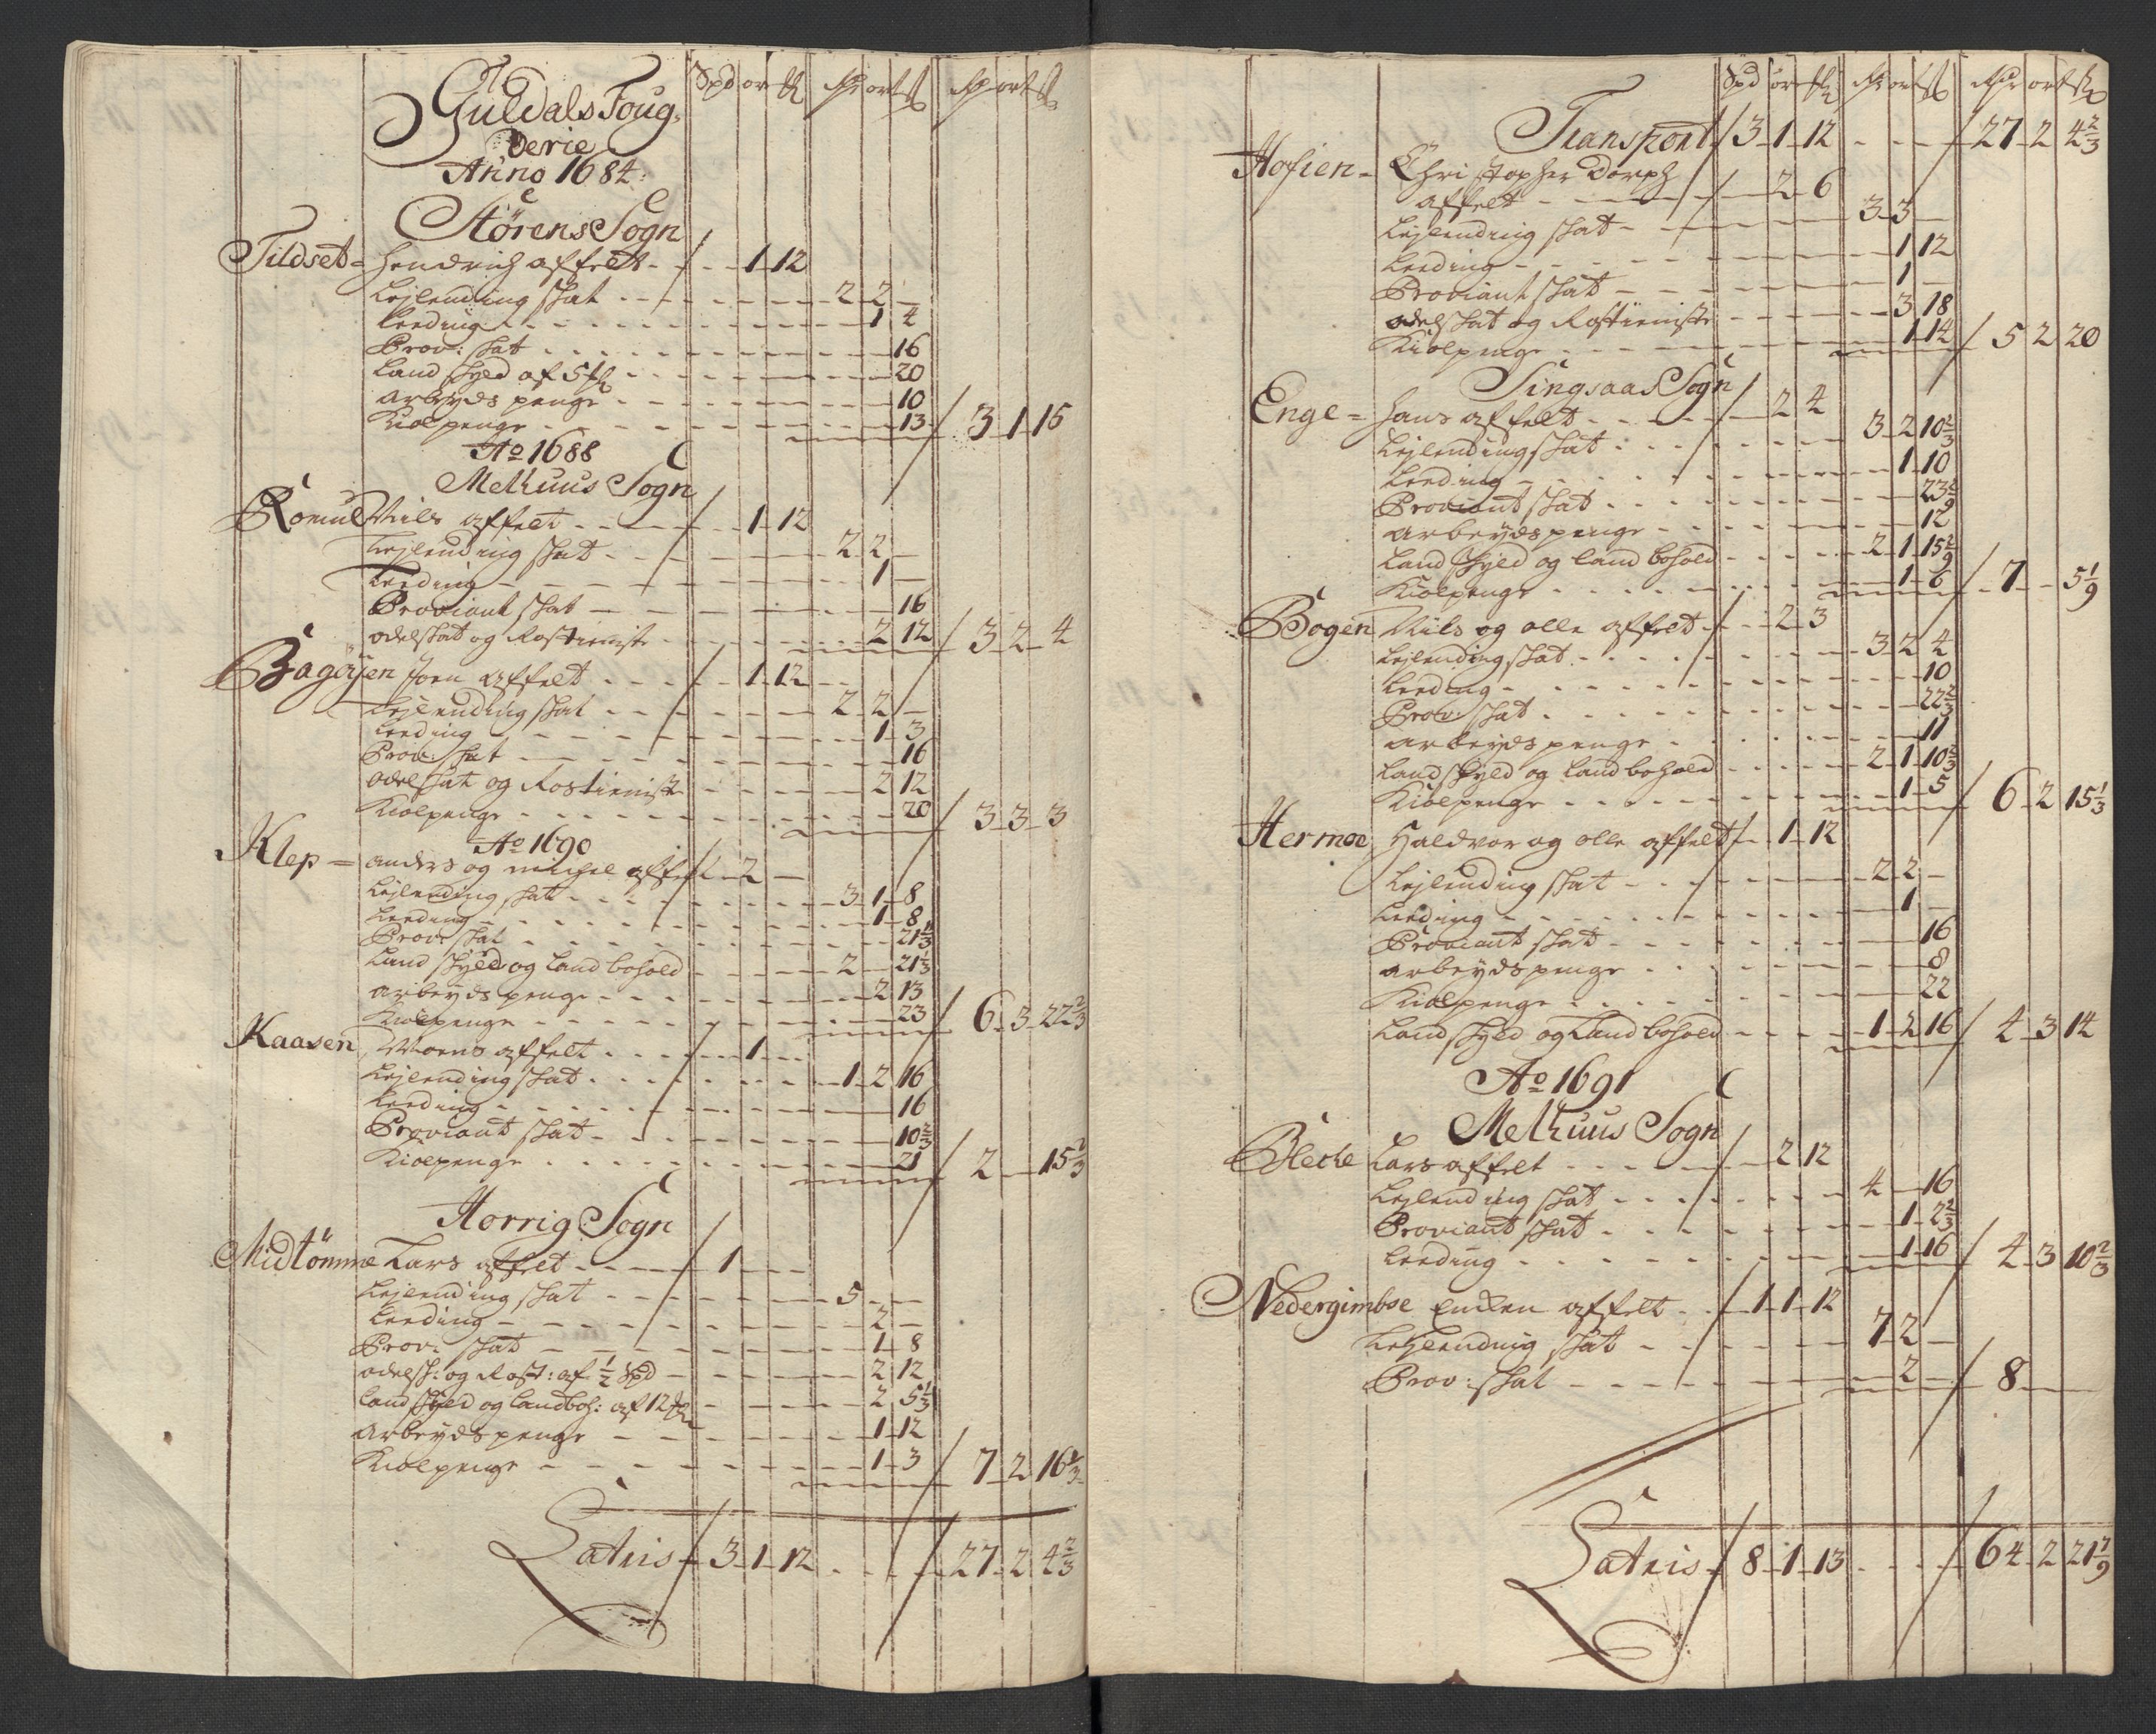 Spd ort ₰ Rdr ort ß Rdr ort ß
Guldals Foug-
derie
Anno 1684:
Størens Sogn
Tildset= Hendrich affelt - - - 1-12
Lejlending skat - - - 2-2-
Leeding - - - 1 4
Prov: skat - - - 16
Land skyld af 5 ₰ - - - 20
Arbeyds penge - - - 10
Kiolpenge - - - 13 / 3-1-15
Ao 1688
Melhuus Sogn
Romul Niels affelt - - - 1-12
Lejlending skat - - - 2 2 -
Leeding - - - 1 -
Proviant skat - - - 16
odelskat og Rostieniste - - - 2 12 / 3-2-4
Bagøyen Joen affelt - - - 1-12 -
Lejlending skat - - - 2-2 -
Leeding - - - 1-3
Prov: skat - - - 16
odelskat og Rostieniste - - - 2 12
Kiolpenge - - - 20 / 3-3-3
Ao 1690
Klep = anders og michel affelt - 2 -
Lejlending skat - - - 3-1-8
Leeding - - - 1-8
Prov: skat - - - 21 1/3
Land skyld og Land bohold - - - 2 - 21 1/3
arbeyds penge - - - 2 13
Kiolpenge - - - 23 / 6-3-22 2/3
Kaasen, Moens affelt - - - 1 - -
Lejlending skat - - - 1-2 16
Leeding - - - 16
Proviant skat - - - 10 2/3
Kiolpenge - - - 21 / 2 - 15 2/3
Horrig Sogn
Midtømme Lars affelt - - - 1 - -
Lejlending skat - - - 5 - -
Leeding - - - 2 -
Prov: skat - - - 1-8
odelsk: og Rost: af 1/2 Spd - - - 2 12
Land skyld og Landboh: af 12 ₰ - - - 2 5 1/3
Arbeyds penge - - - 1-12
Kiolpenge - - - 1-3 / 7-2-16 1/3
Latris - 3-1-12 - - - 27-2-4 2/3
Spd ort ₰ Rdr ort ß Rdr ort ß
Transport / 3-1-12 - - - 27-2 4 2/3
Hofien= Christopher Dorph
affelt - - - 2-6
Lejlending skat - - - 3-3 -
Leeding - - - 1 12
Proviant skat - - - 1 -
odelskat og Rostieniste - - - 3 18
Kiolpenge - - - 1-14 / 5 2 20
Singsaas Sogn
Enge = Hans affelt - - - 2 4
Lejlending skat - - - 3-2 10 2/3
Leeding - - - 1-10
Proviant skat - - - 23 2/9
arbeyds penge - - - 12
Land skyld og land bohold - - - 2-1-15 2/9
Kiolpenge - - - 1-6 / 7 - 5 1/9
Bogen Niels og olle affelt - - - 2-3
Lejlending skat - - - 3-2 4
Leeding - - - 10
Prov: skat - - - 22 2/3
arbeyds penge - - - 11
Land skyld og Land bohold - - - 2-1-10 2/3
Kiolpenge - - - 1-5 / 6-2 15 1/3
Hermoe Haldvor og olle affelt - 1-12
Lejlending skat - - - 2 2 -
Leeding - - - 1 -
Proviant skat - - - 16
arbeyds penge - - - 8
Kiolpenge - - - 22
Land skyld og Land bohold - - - 1-2 16 / 4-3 14
Ao 1691
Melhuus Sogn
Lars affelt - - - 2 12
Lejlending skat - - - 4 - 16
Proviant skat - - - 1-2 2/3
Leeding - - - 1-16 / 4-3 10 2/3
Nedergimbse Encken affelt - - 1-1-12
Lejlending skat - - - 7 2 -
Prov: skat - - - 2 - / 8 - -
Latris - 8-1-13 - - - 64-2 21 7/9